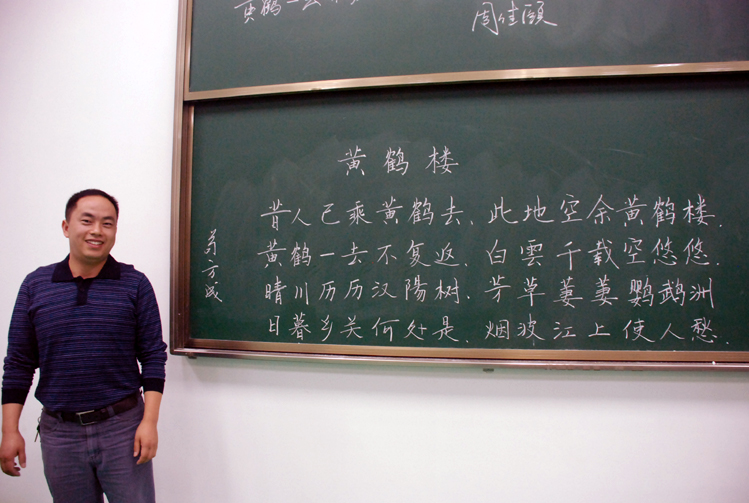 黄鹤一去
周佳颐
黄鹤楼
昔人已乘黄鹤去、此地空余黄鹤楼.
黄鹤一去不复返、白雲千载空悠悠.
晴川历历汉陽树、芳草萋萋鹦鹉洲
日暮乡关何处是、烟波江上使人愁.